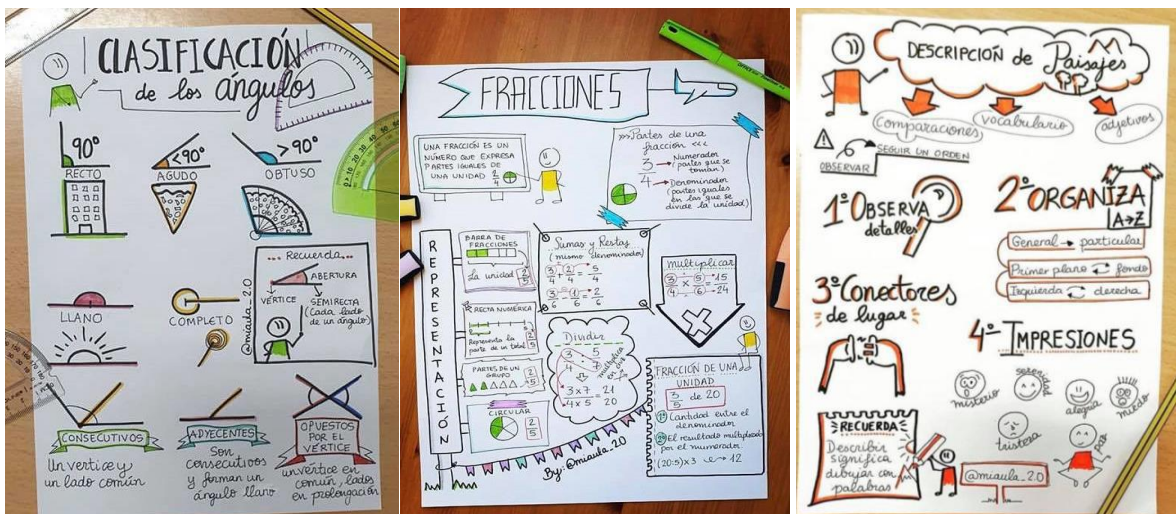 CLASIFICACIÓN
de los ángulos
90º
RECTO
<90º
AGUDO
>90º
OBTUSO
... Recuerda...
ABERTURA
VÉRTICE
SEMIRECTA
(Cada lado
de un ángulo)
@miaula_2.0
LLANO
COMPLETO
CONSECUTIVOS
Un vertice y
un lado común
ADYECENTES
Son
consecutivos
y forman un
ángulo llano
OPUESTOS
POR EL
VÉRTICE
un vértice en
común, lados
en prolongación
FRACCIONES
UNA FRACCIÓN ES UN
NÚMERO QUE EXPRESA
PARTES IGUALES DE
UNA UNIDAD 2/4
>>>Partes de una
fracción <<<
3/4
Numerador
(partes que se
toman)
Denominador
(partes iguales
en las que se
divide la unidad)
REPRESENTACIÓN
BARRA DE
FRACCIONES
La unidad 2/5
RECTA NUMÉRICA
Representa la
parte de un total 2/5
PARTES DE UN
GRUPO
2/5
CIRCULAR
2/5
Sumas y Restas
(mismo denominador)
3/4 + 2/4 = 5/4
3/6 - 1/6 = 2/6
multiplicar
3/4 × 5/6 = 15/24
Dividir
multiplica
en cruz
3×7/4×5 = 21/20
FRACCIÓN DE UNA
UNIDAD
3/5 de 20
1º Cantidad entre el
denominador
2º El resultado multiplicado
por el numerador
(20:5)×3 → 12
By: @miaula_2.0
DESCRIPCIÓN de Paisajes
comparaciones
vocabulario
adjetivos
OBSERVAR
SEGUIR UN ORDEN
1º OBSERVA
detalles
2º ORGANIZA
A→Z
General → particular
Primer plano ⇄ fondo
Izquierda ⇄ derecha
3º Conectores
de lugar
4º IMPRESIONES
misterio
serenidad
alegria
miedo
tristeza
paz
RECUERDA
Describir
significa
dibujar con
palabras
@miaula_2.0